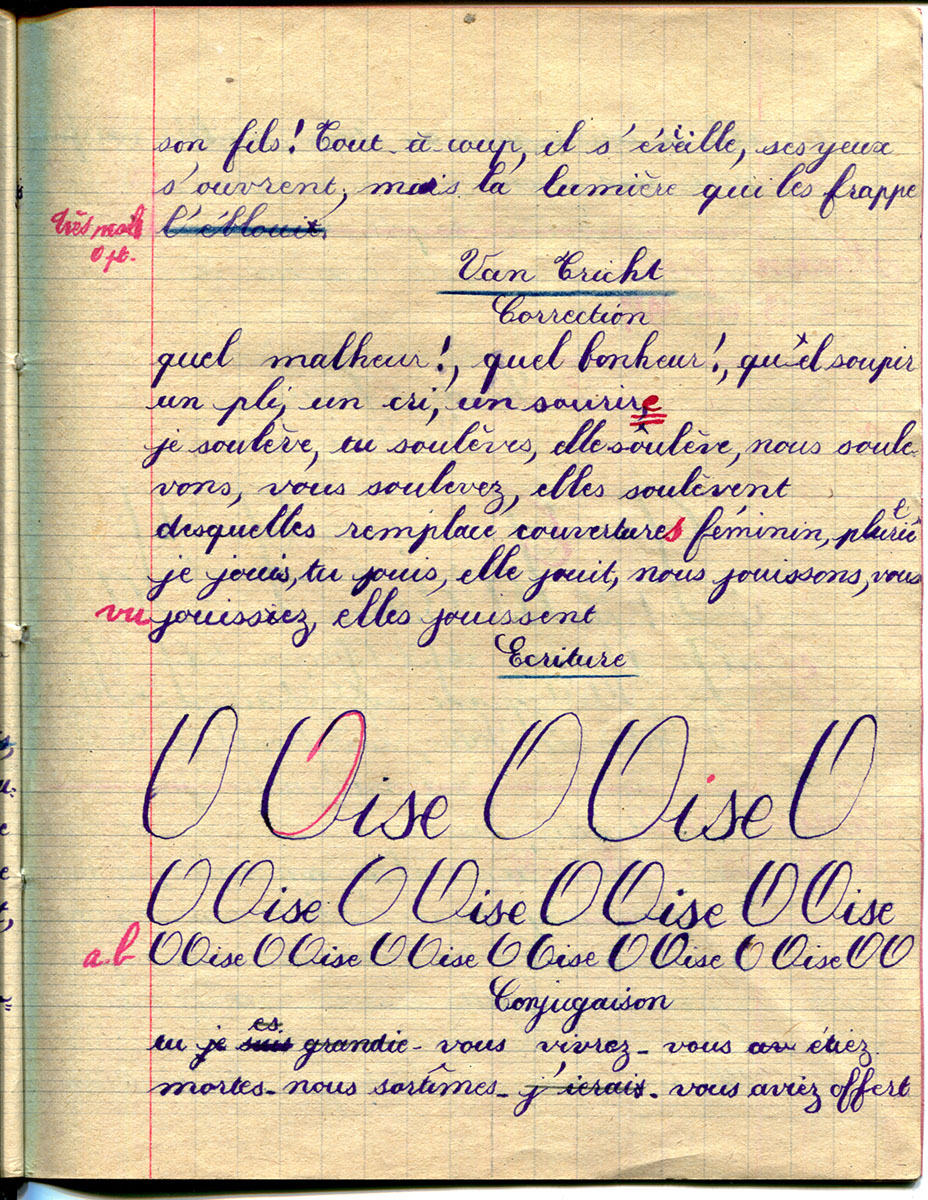 son fils! Tout à coup, il s'éveille, ses yeux
s'ouvrent, mais la lumière qui les frappe
très mal l'éblouit.
0 pt.
Van Tricht
Correction
quel malheur!, quel bonheur!, quel soupir
un pli, un cri, un sourire
je soulève, tu soulèves, elle soulève, nous soule-
vons, vous soulevez, elles soulèvent
desquelles remplace couvertures féminin, pluriel
je jouis, tu jouis, elle jouit, nous jouissons, vous
vu jouissiez, elles jouissent
Ecriture
O Oise O Oise O
O Oise O Oise O Oise O Oise
a.b O Oise O Oise O Oise O Oise O Oise O Oise O O
Conjugaison
es
tu je suis grandie - vous vivrez - vous av étiez
mortes - nous sortîmes - j'ierais - vous aviez offert